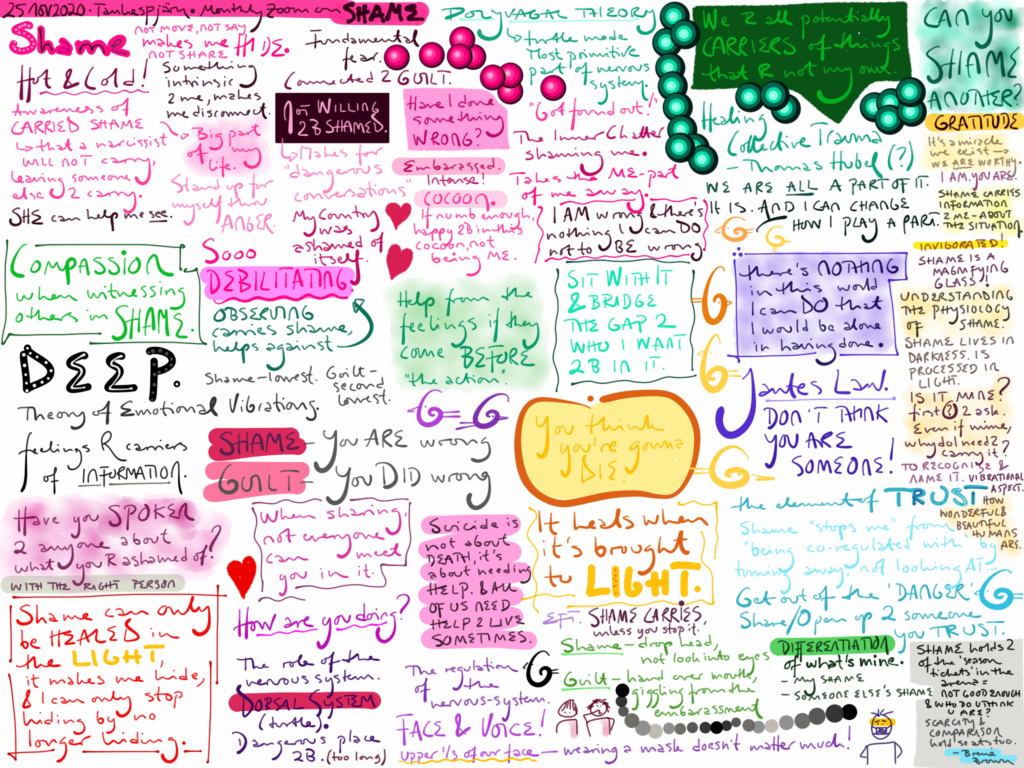 25 NOV 2020 · Tankespjärn · Monthly Zoom on SHAME
Shame
NOT MOVE, NOT SAY
makes me HIDE.
NOT SHARE.
Hot & Cold!
Something
intrinsic
2 me, makes
me disconnect.
Awareness of
CARRIED SHAME
↳ that a narcissist
will not carry,
leaving someone
else 2 carry.
SHE can help me see.
↳ Big part
of my
life.
Stand up for
myself thru
ANGER.
Fundamental
fear.
Connected 2 GUILT.
NOT WILLING
2B SHAMED.
↳ Makes for
"dangerous
conversations"
My Country
was
ashamed of
itself.
Have I done
something
WRONG?
Embarassed.
Intense!
COCOON.
If numb enough,
happy 2B in this
cocoon, not
being ME.
POLYVAGAL THEORY
↳ turtle mode
Most primitive
part of nervous
system.
"Got found out!"
The Inner Chatter
shaming me.
Takes the ME-part
of me away.
I AM wrong & there's
nothing I can DO
not to BE wrong
We R all potentially
CARRIERS of things
that R not my own.
Healing
Collective Trauma
– Thomas Hubel (?)
WE ARE ALL A PART OF IT.
IT IS. AND I CAN CHANGE
HOW I PLAY A PART.
CAN YOU
SHAME
ANOTHER?
GRATITUDE
It's a miracle
we exist –
WE ARE WORTHY.
I AM. YOU ARE.
SHAME CARRIES
INFORMATION
2 ME – ABOUT
THE SITUATION.
INVIGORATED!
SHAME IS A
MAGNIFYING
GLASS!
UNDERSTANDING
THE PHYSIOLOGY
OF SHAME.
SHAME LIVES IN
DARKNESS. IS
PROCESSED IN
LIGHT.
IS IT MINE?
first ? 2 ask.
Even if mine,
why do I need 2
carry it?
TO RECOGNISE &
NAME IT. VIBRATIONAL
ASPECT.
HOW
WONDERFUL &
BEAUTIFUL
HUMANS
ARE.
COMPASSION
when witnessing
others in SHAME.
Sooo
DEBILITATING.
OBSERVING
carries shame,
helps against
Help from the
feelings if they
come BEFORE
"the action".
SIT WITH IT
& BRIDGE
THE GAP 2
WHO I WANT
2B IN IT.
there's NOTHING
in this world
I can DO that
I would be alone
in having done.
DEEP.
Shame – lowest. Guilt –
second
lowest.
Theory of Emotional Vibrations.
feelings R carriers
of INFORMATION.
SHAME – You ARE wrong
GUILT – You DID wrong
You think
you're gonna
DIE.
Jantes Law.
DON'T THINK
YOU ARE
SOMEONE!
Have you SPOKEN
2 anyone about
what you R ashamed of?
WITH THE RIGHT PERSON
When sharing,
not everyone
can meet
you in it.
Suicide is
not about
DEATH, it's
about needing
HELP. & ALL
OF US NEED
HELP 2 LIVE
SOMETIMES.
It heals when
it's brought
to LIGHT.
the element of TRUST
Shame "stops me" from
"being co-regulated with" by
turning away, not looking AT...
Get out of the 'DANGER'
Share/Open up 2 someone
you TRUST.
Shame can only
be HEALED in
the LIGHT,
it makes me hide,
& I can only stop
hiding by no
longer hiding.
How are you doing?
The role of the
nervous system.
DORSAL SYSTEM
(turtle).
Dangerous place
2B. (too long)
The regulation
of the
nervous-system.
FACE & VOICE!
upper ½ of our face – wearing a mask doesn't matter much!
EFT.
SHAME CARRIES,
unless you stop it.
Shame – drop head,
not look into eyes
Guilt – hand over mouth,
giggling from the
embarassment
DIFFERENTIATION
of what's mine.
– MY SHAME
– SOMEONE ELSE'S SHAME
SHAME holds 2
of the 'season
tickets in the
arena' =
NOT GOOD ENOUGH
& WHO DO U THINK
U ARE?
SCARCITY &
COMPARISON
hold seats too.
– Brené
Brown